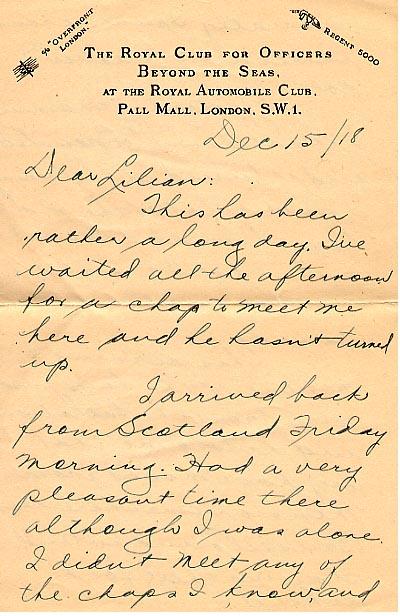 "OVERFRONT
LONDON."
REGENT 5000
THE ROYAL CLUB FOR OFFICERS
BEYOND THE SEAS,
AT THE ROYAL AUTOMOBILE CLUB,
PALL MALL, LONDON, S.W.1.
Dec 15/18
Dear Lilian:
This has been
rather a long day. I've
waited all the afternoon
for a chap to meet me
here and he hasn't turned
up.
I arrived back
from Scotland Friday
morning. Had a very
pleasant time there
although I was alone.
I didn't meet any of
the chaps I know, and